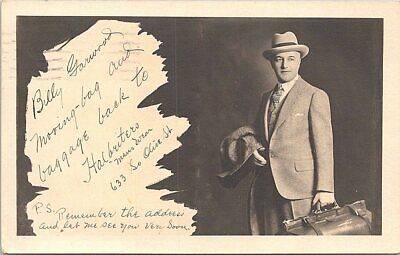 Billy Garwood
Moving - bag and
baggage back to
Halbriters
Mens Wear
633 So Olive St
P.S. Remember the address
and let me see you Very Soon